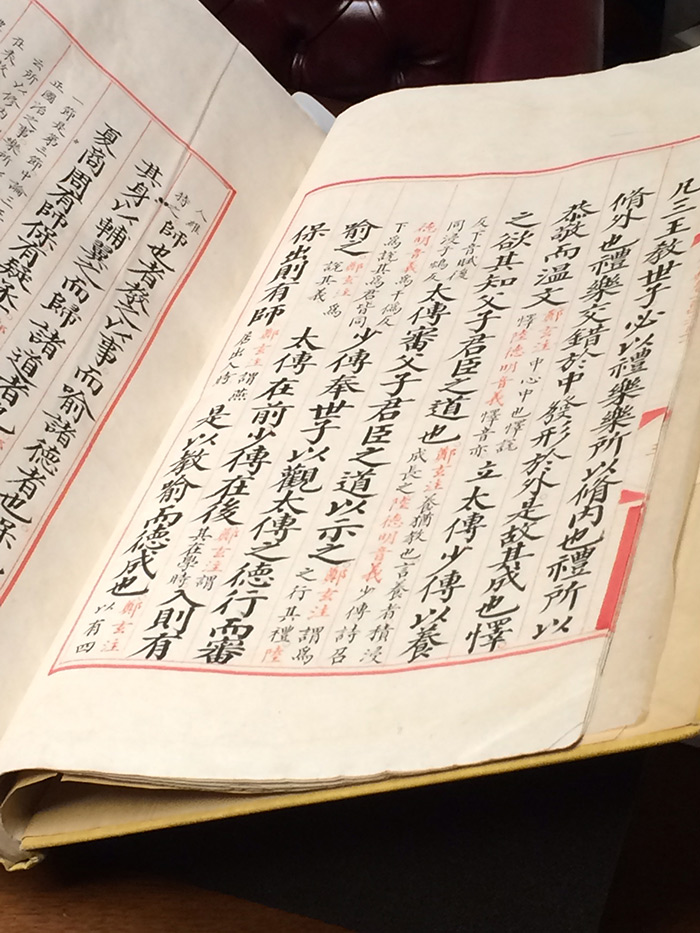 凡三王教世子必以禮樂樂所以脩內也禮所以
脩外也禮樂交錯於中發形於外是故其成也懌
恭敬而溫文
鄭玄注中心中也懌說
懌陸德明音義懌音亦
立太傅少傅以養
之欲其知父子君臣之道也
鄭玄注養猶教也言養者積浸
成長之陸德明音義少傅詩召
反下音賦後
同浸子鴆反
太傅審父子君臣之道以示之
鄭玄注謂爲
之行其禮陸
德明音義爲于僞反
下爲說其爲君皆同
少傅奉世子以觀太傅之德行而審
喻之
鄭玄注爲
說其義
太傅在前少傅在後
鄭玄注謂
其在學時
入則有
保出則有師
鄭玄注謂燕
居出入時
是以教喻而德成也
鄭玄注
以有四
人維
持之
師也者教之以事而喻諸德者也保
其身以輔翼之而歸諸道者也
夏商周有師保有疑丞
一節是第三節中論三王
正國治之事樂所
云所以修內
在未故